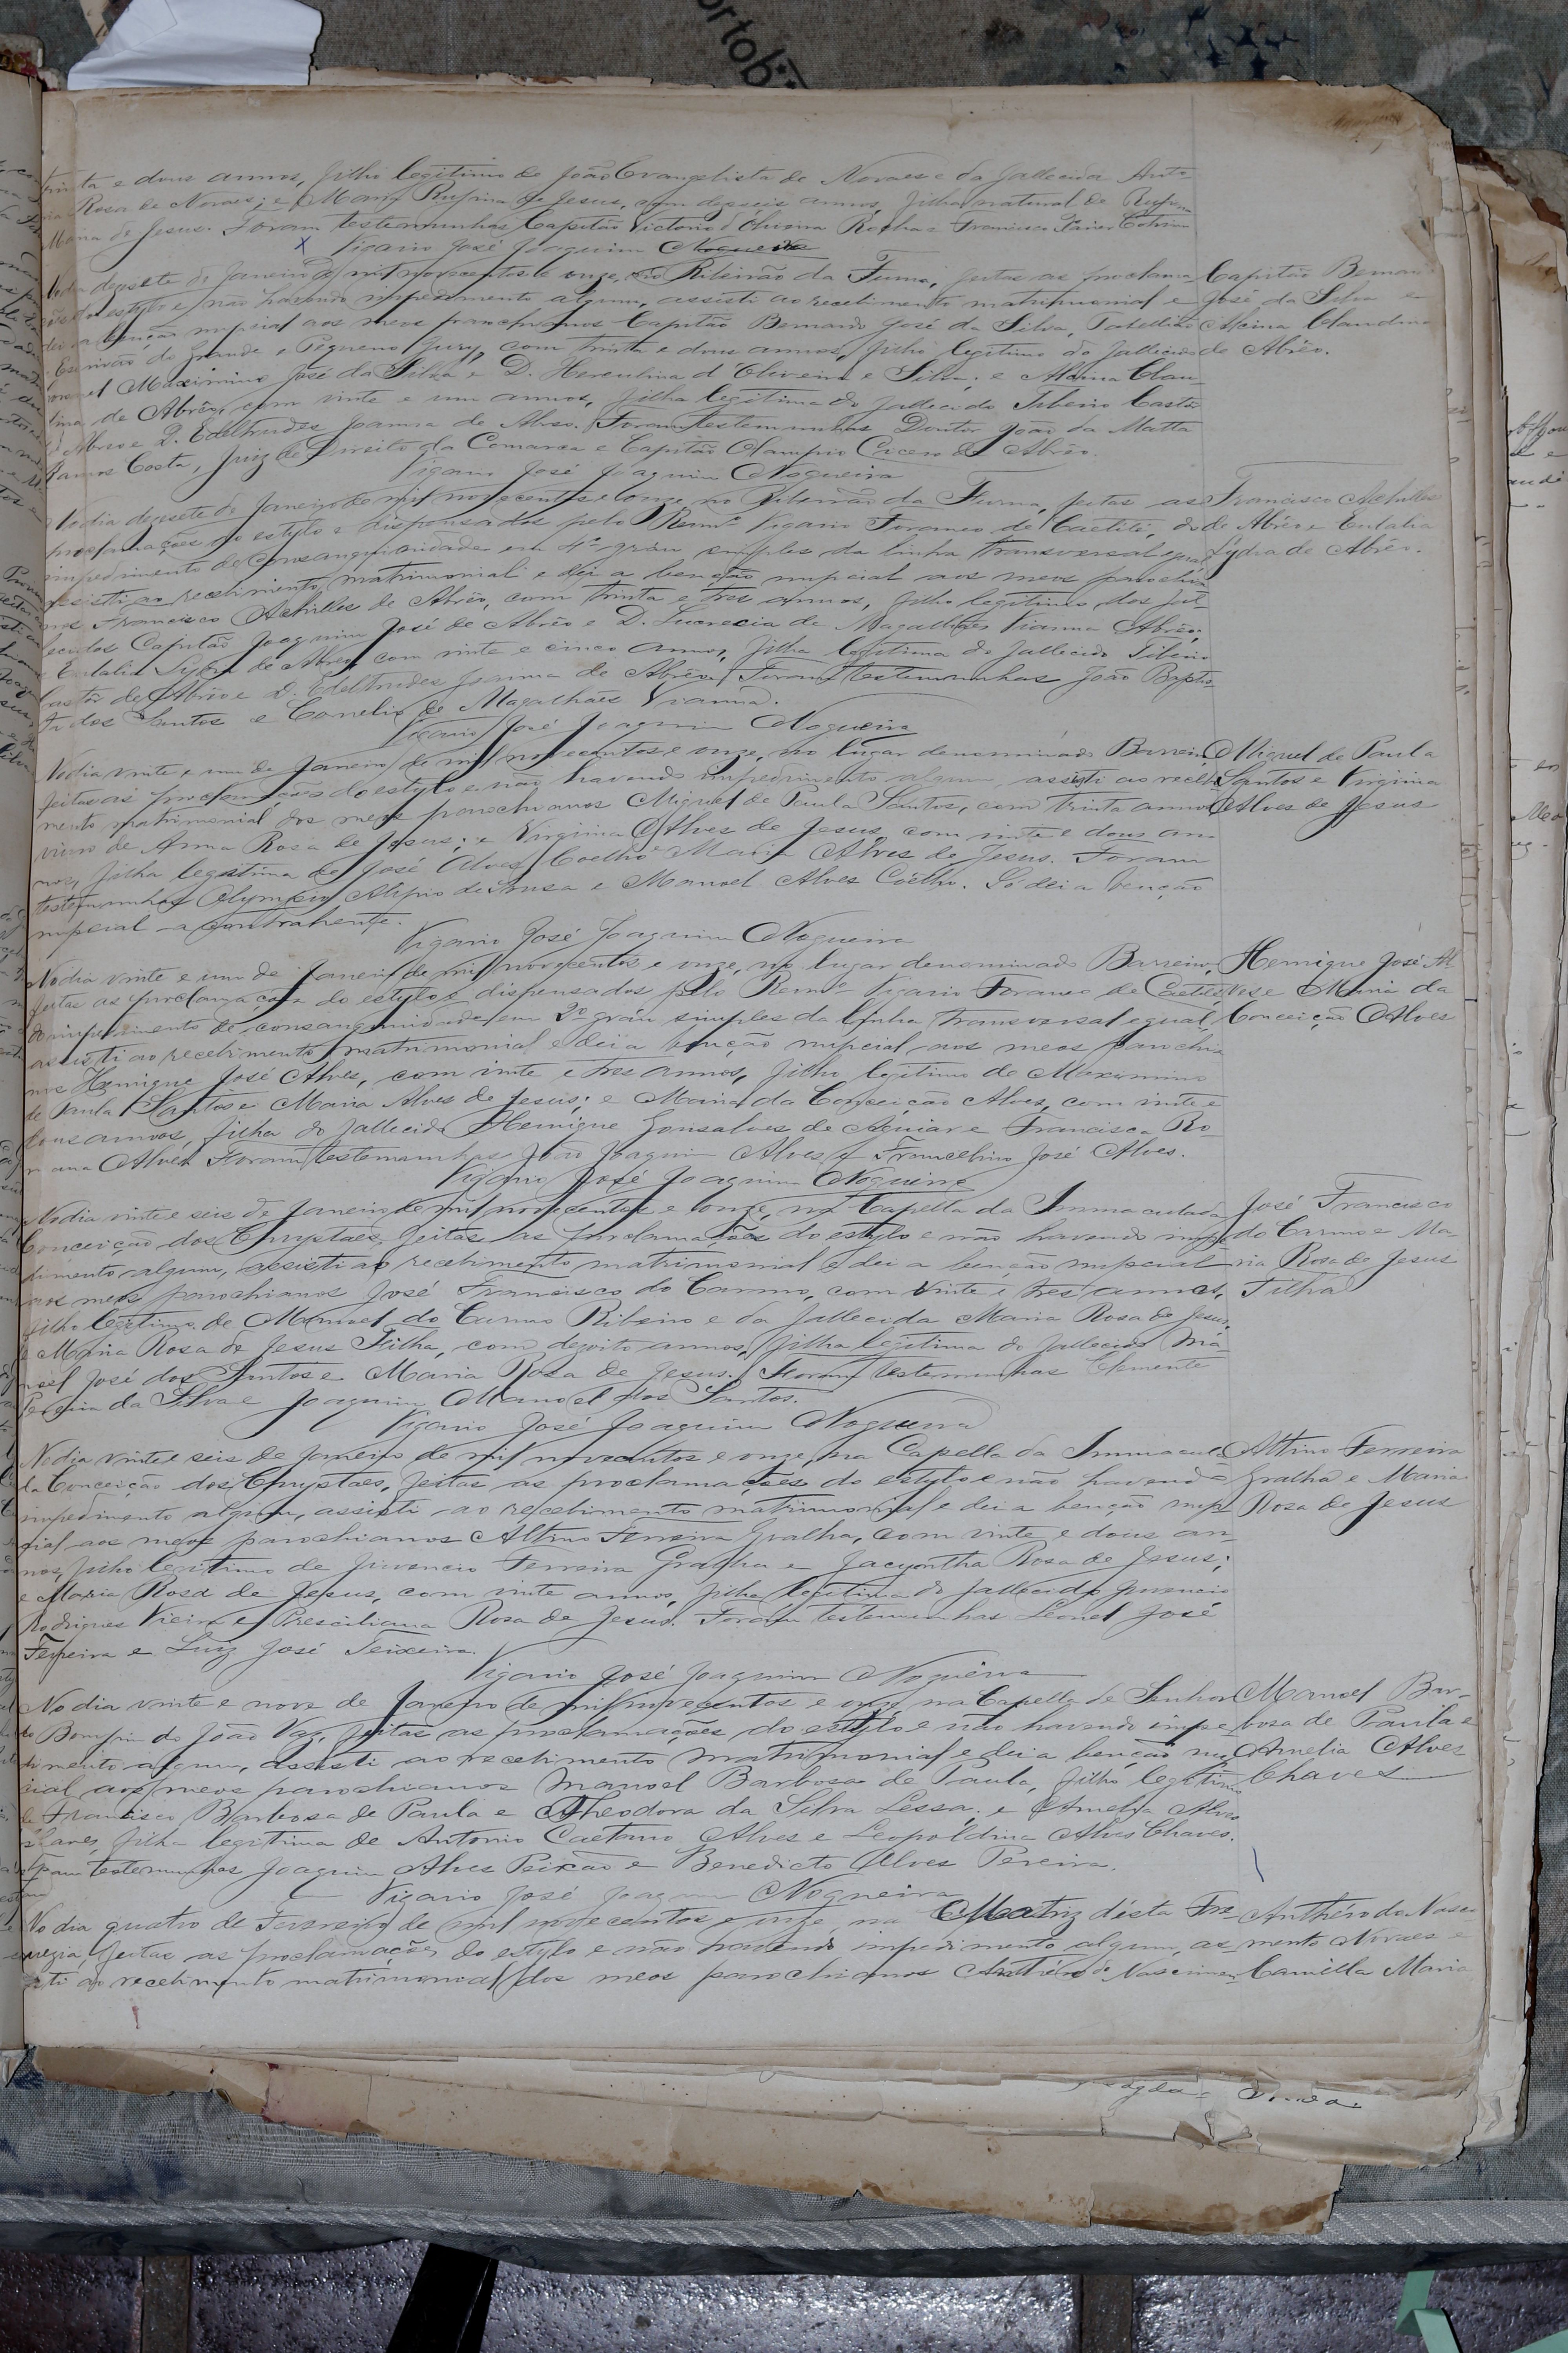 trinta e dous annos, filho legitimo de João Evangelista de Novaes e da fallecida Anto-
nia Rosa de Novaes; e Maria Rufina de Jesus, com deseseis annos, filha natural de Rufina
Maria de Jesus. Foram testemunhas Capitão Victorio d'Oliveira Rocha e Francisco Xavier Cotrim
Vigario José Joaquim Nogueira
No dia desesete de Janeiro de mil novecentos e onze, no Ribeirão da Furna, feitas as proclama-
ções do estylo e não havendo impedimento algum, assisti ao recebimento matrimonial e
dei a benção nupcial aos meos parochianos Capitão Bernardo José da Silva, Tabellião
Escrivão do Grande e Pequeno Jury, com trinta e dous annos, filho legitimo do fallecido
Coronel Maximino José da Silva e D. Herculina d'Oliveira e Silva; e Alcina Clau-
dina de Abrêo, com vinte e um annos, filha legitima do fallecido Tiberio Castôr
d'Abreo e D. Edeltrudes Joanna de Abreo. Foram testemunhas Doutor João da Matta
Ramos Costa, Juiz de Direito da Comarca e Capitão Olympio Cicero de Abrêo.
Vigario José Joaquim Nogueira
Capitão Bernardo
José da Silva e
Alcina Claudina
de Abrêo.
No dia desesete de Janeiro de mil novecentos e onze, no Ribeirão da Furna, feitas as
proclamações do estylo e dispensados pelo Revmº Vigario Foraneo de Caetité, do
impedimento de consanguinidade em 4º gráu simples da linha transversal egual
assisti ao recebimento matrimonial e dei a benção nupcial aos meos parochia-
nos Francisco Achilles de Abrêo, com trinta e tres annos, filho legitimo dos fal-
lecidos Capitão Joaquim José de Abrêo e D. Lucrecia de Magalhães Vianna Abrêo;
e Eulalia Lydia de Abreo, com vinte e cinco annos, filha legitima do fallecido Tiberio
Castôr de Abrêo e D. Edeltrudes Joanna de Abrêo. Foram testemunhas João Baptis-
ta dos Santos e Cornelio de Magalhães Vianna.
Vigario José Joaquim Nogueira
Francisco Achilles
de Abrêo e Eulalia
Lydia de Abrêo.
No dia vinte e um de Janeiro de mil novecentos e onze, no lugar denominado Barreiro
feitas as proclamações do estylo e não havendo impedimento algum, assisti ao recebi-
mento matrimonial dos meos parochianos Miguel de Paula Santos, com trinta annos
viuvo de Anna Rosa de Jesus; e Virginia Alves de Jesus, com vinte e dous an-
nos, filha legitima de José Alves Coelho e Maria Alves de Jesus. Foram
testemunhas Olympio Alipio de Sousa e Manoel Alves Coêlho. Só dei a benção
nupcial a contrahente.
Vigario José Joaquim Nogueira
Miguel de Paula
Santos e Virginia
Alves de Jesus
No dia vinte e um de Janeiro de mil novecentos e onze, no lugar denominado Barreiro,
feitas as proclamações do estylo e dispensados pelo Revmº Vigario Foraneo de Caetité
do impedimento de consanguinidade em 2º gráu simples da linha transversal egual,
assisti ao recebimento matrimonial e dei a benção nupcial aos meos parochia-
nos Henrique José Alves, com vinte e tres annos, filho legitimo de Maximino
de Paula Santos e Maria Alves de Jesus; e Maria da Conceição Alves, com vinte e
dous annos, filha do fallecido Henrique Gonsalves de Aguiar e Francisca Ro-
mana Alves. Foram testemunhas João Joaquim Alves e Francelino José Alves.
Vigario José Joaquim Nogueira
Henrique José Al-
ves e Maria da
Conceição Alves
No dia vinte e seis de Janeiro de mil novecentos e onze, na Capella da Immaculada
Conceição dos Chrystaes, feitas as proclamações do estylo e não havendo impe-
dimento algum, assisti ao recebimento matrimonial e dei a benção nupcial
aos meos parochianos José Francisco do Carmo, com vinte e tres annos,
filho legitimo de Manoel do Carmo Ribeiro e da fallecida Maria Rosa de Jesus,
e Maria Rosa de Jesus Filha, com desoito annos, filha legitima do fallecido Ma-
noel José dos Santos e Maria Rosa de Jesus. Foram testemunhas Clemente
Pereira da Silva e Joaquim Manoel dos Santos.
Vigario José Joaquim Nogueira
José Francisco
do Carmo e Ma-
ria Rosa de Jesus
Filha
No dia vinte e seis de Janeiro de mil novecentos e onze, na Capella da Immacula-
da Conceição dos Chrystaes, feitas as proclamações do estylo e não havendo
impedimento algum, assisti ao recebimento matrimonial e dei a benção nup-
cial aos meos parochianos Altino Ferreira Gralha, com vinte e dous an-
nos, filho legitimo de Juvencio Ferreira Gralha e Jacyntha Rosa de Jesus;
e Maria Rosa de Jesus, com vinte annos, filha legitima do fallecido Juvencio
Rodrigues Vieira e Presciliana Rosa de Jesus. Foram testemunhas Leonel José
Ferreira e Luiz José Teixeira.
Vigario José Joaquim Nogueira
Altino Ferreira
Gralha e Maria
Rosa de Jesus
No dia vinte e nove de Janeiro de mil novecentos e onze, na Capella de Senhor
do Bomfim do João Vaz, feitas as proclamações do estylo e não havendo impe-
dimento algum, assisti ao recebimento matrimonial e dei a benção nup-
cial aos meos parochianos Manoel Barbosa de Paula, filho legitimo
de Francisco Barbosa de Paula e Theodora da Silva Lessa; e Amelia Alves
Chaves, filha legitima de Antonio Caetano Alves e Leopoldina Alves Chaves.
Foram testemunhas Joaquim Alves Peixão e Benedicto Alves Pereira.
Vigario José Joaquim Nogueira
Manoel Bar-
bosa de Paula e
Amelia Alves
Chaves
No dia quatro de Fevereiro de mil novecentos e onze, na Matriz désta Fre-
guezia, feitas as proclamações do estylo e não havendo impedimento algum, as-
sisti ao recebimento matrimonial dos meos parochianos Anthéro do Nascimen-
Anthéro do Nasci-
mento Novaes e
Camilla Maria